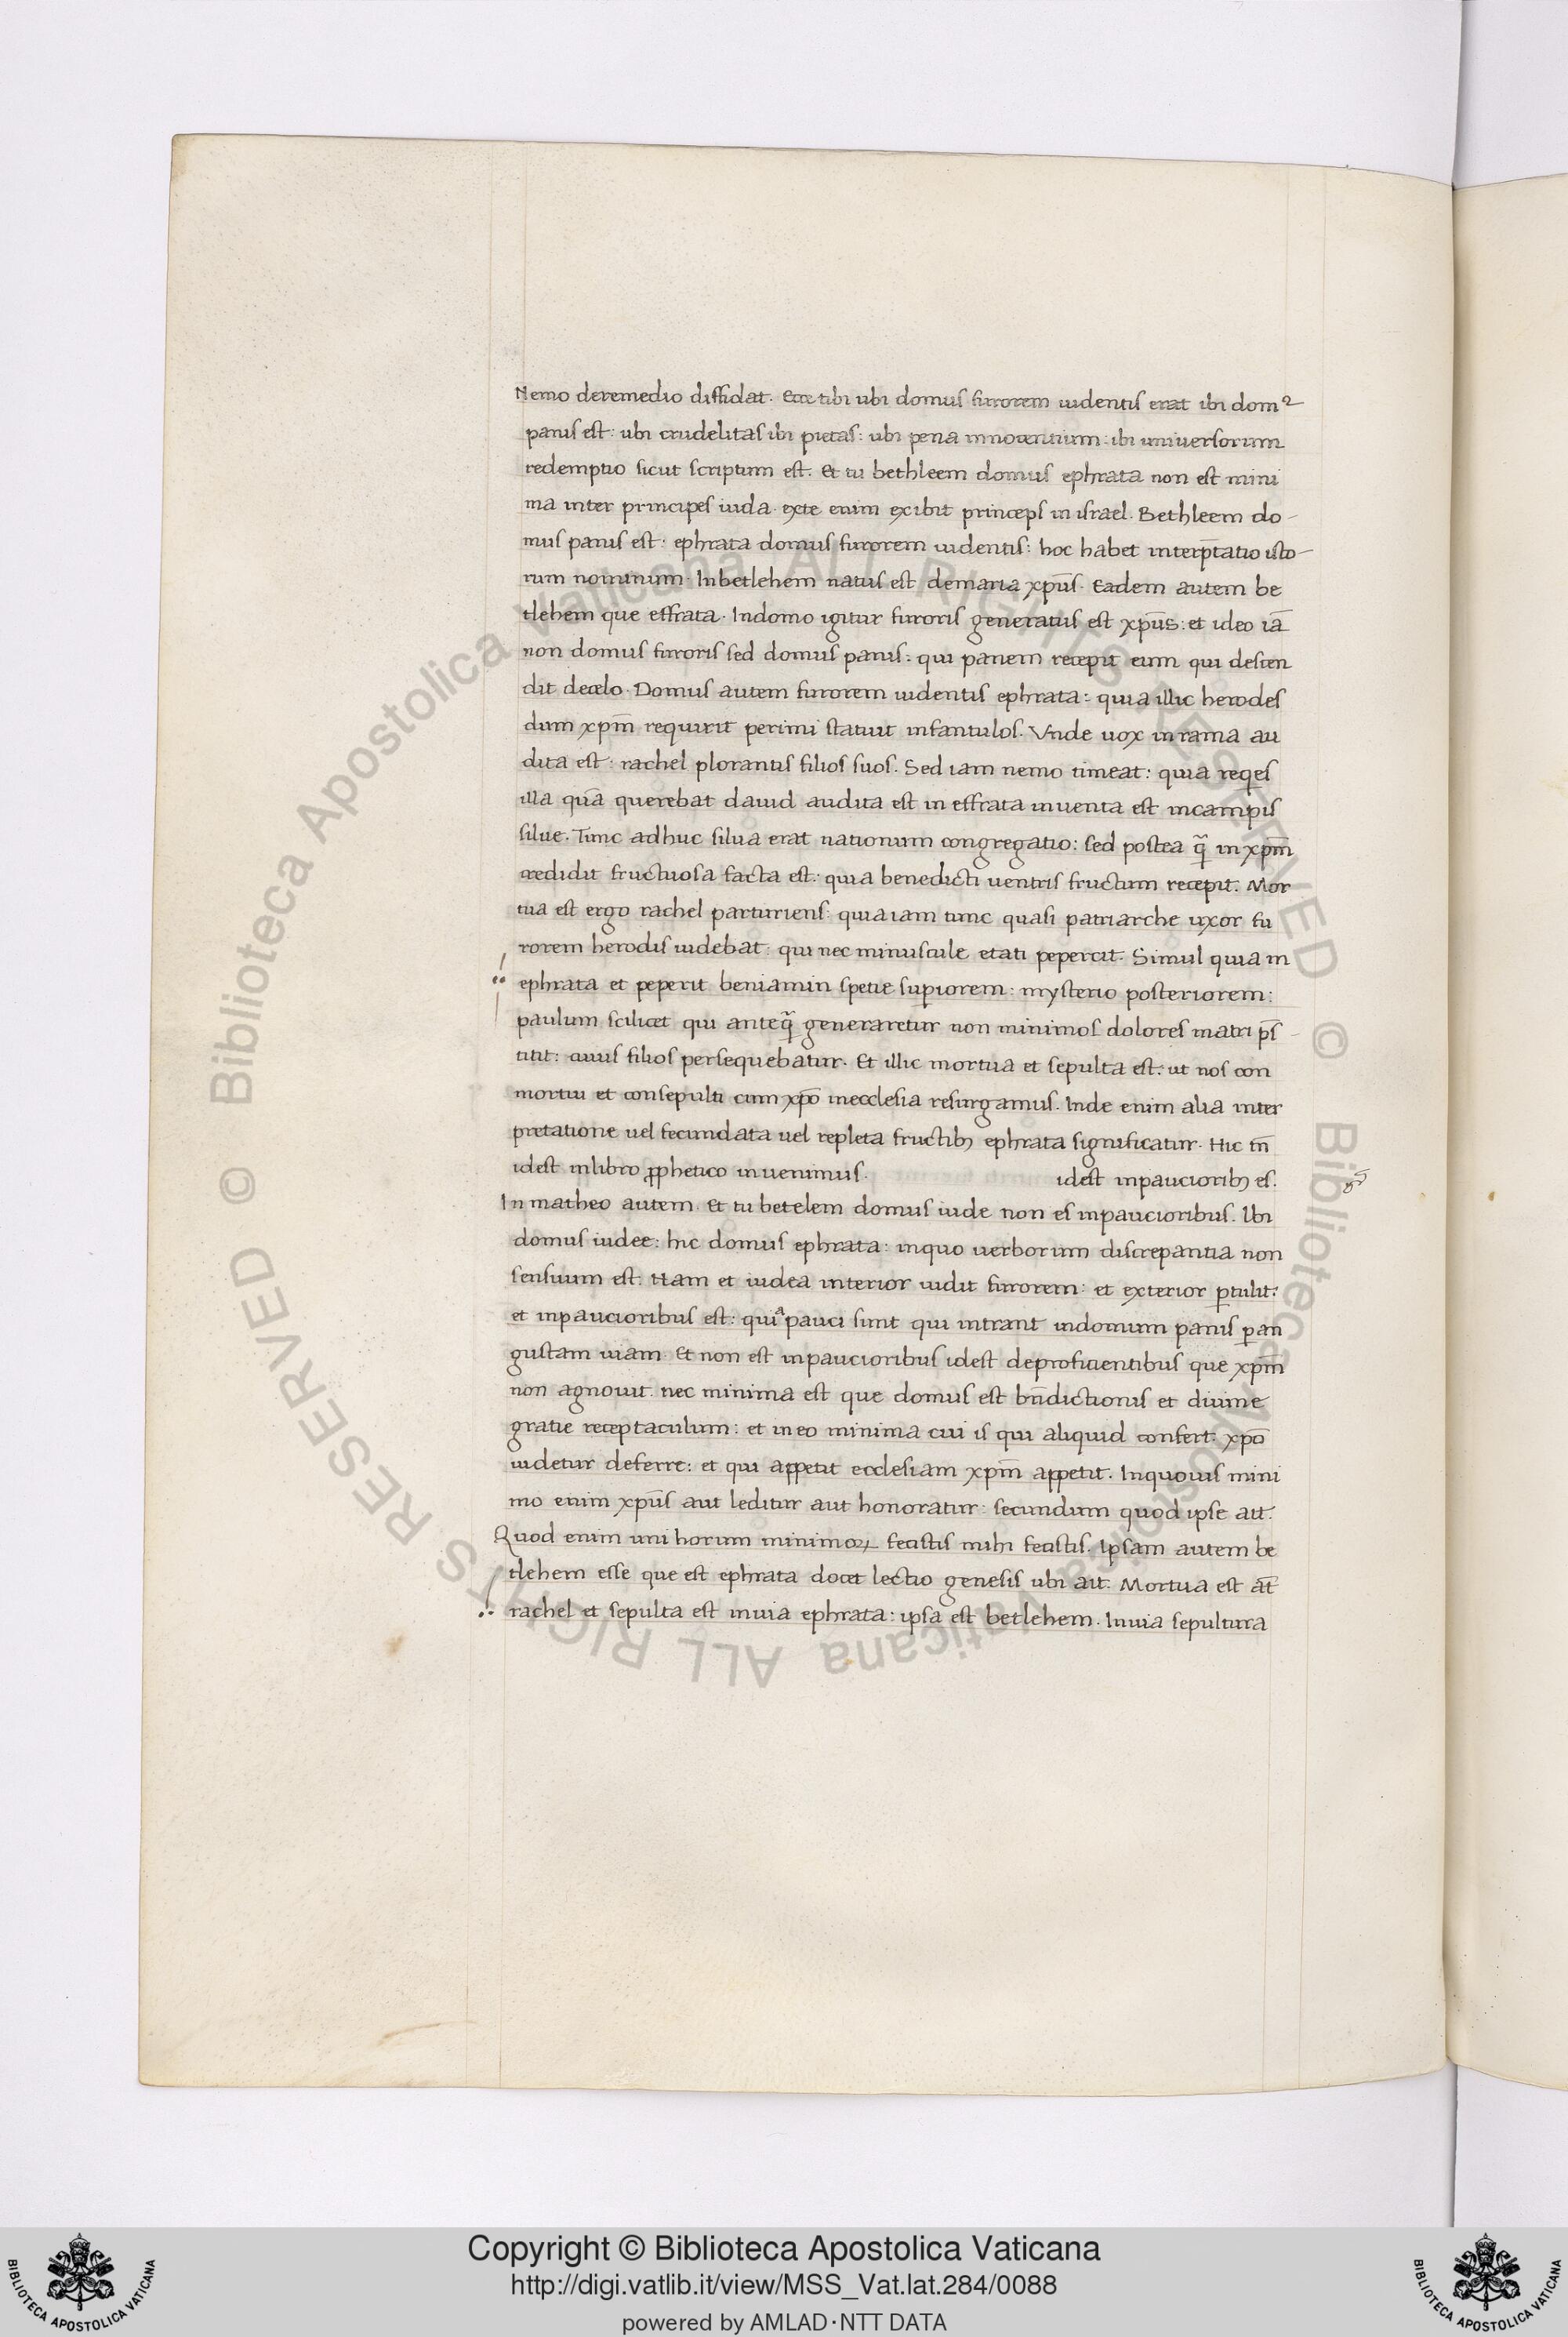 Nemo deremedio diffidat. Ecce tibi ubi domus furorem uidentis erat ibi domꝰ
panis est: ubi crudelitas ibi pietas: ubi pena innocentium: ibi uniuersorum
redemptio sicut scriptum est. Et tu bethleem domus ephrata non est mini
ma inter principes iuda. exte enim exibit princeps in israel. Bethleem do-
mus panis est: ephrata domus furorem uidentis: hoc habet interp̄tatio isto-
rum nominum. Inbetlehem natus est demaria xp̄us. Eadem autem be
tlehem que effrata. Indomo igitur furoris generatus est xp̄us: et ideo iā
non domus furoris sed domus panis: qui panem recepit eum qui descen
dit decelo. Domus autem furorem uidentis ephrata: quia illic herodes
dum xpm̄ requirit perimi statuit infantulos. Vnde uox inrama au
dita est: rachel plorantis filios suos. Sed iam nemo timeat: quia reqes
illa quā querebat dauid audita est in effrata inuenta est incampis
silue. Tunc adhuc silua erat nationum congregatio: sed postea q̄ inxpm̄
credidit fructuosa facta est: quia benedicti uentris fructum recepit. Mor
tua est ergo rachel parturiens: quia iam tunc quasi patriarche uxor fu
rorem herodis uidebat: qui nec minuscule etati pepercit. Simul quia in
ephrata et peperit beniamin spetie suꝑiorem: mysterio posteriorem:
paulum scilicet qui anteq̄ generaretur non minimos dolores matri p̄s
titit: cuius filios persequebatur. Et illic mortua et sepulta est: ut nos con
mortui et consepulti cum xpō inecclesia resurgamus. Inde enim alia inter
pretatione uel fecundata uel repleta fructibꝫ ephrata significatur. Hic tn̄
idest inlibro ꝓphetico inuenimus. idest inpaucioribꝫ es.
In matheo autem. Et tu betelem domus iude non es inpaucioribus. Ibi
domus iudee: hic domus ephrata: inquo uerborum discrepantia non
sensuum est. Nam et iudea interior uidit furorem: et exterior ꝑtulit:
et inpaucioribus est: quia pauci sunt qui intrant indomum panis ꝑan
gustam uiam. Et non est inpaucioribus idest deproficientibus que xpm̄
non agnouit. nec minima est que domus est bn̄dictionis et diuine
gratie receptaculum: et ineo minima cui is qui aliquid confert: xpō
uidetur deferre: et qui appetit ecclesiam xpm̄ appetit. Inquouis mini
mo enim xp̄us aut leditur aut honoratur: secundum quod ipse ait.
Quod enim uni horum minimoꝝ fecistis mihi fecistis. Ipsam autem be
tlehem esse que est ephrata docet lectio genesis ubi ait. Mortua est at̄
rachel et sepulta est inuia ephrata: ipsa est betlehem. Inuia sepultura
Copyright © Biblioteca Apostolica Vaticana
http://digi.vatlib.it/view/MSS_Vat.lat.284/0088
powered by AMLAD·NTT DATA
BIBLIOTECA APOSTOLICA VATICANA
BIBLIOTECA APOSTOLICA VATICANA
Biblioteca Apostolica Vaticana ALL RIGHTS RESERVED ©
Biblioteca Apostolica Vaticana ALL RIGHTS RESERVED ©